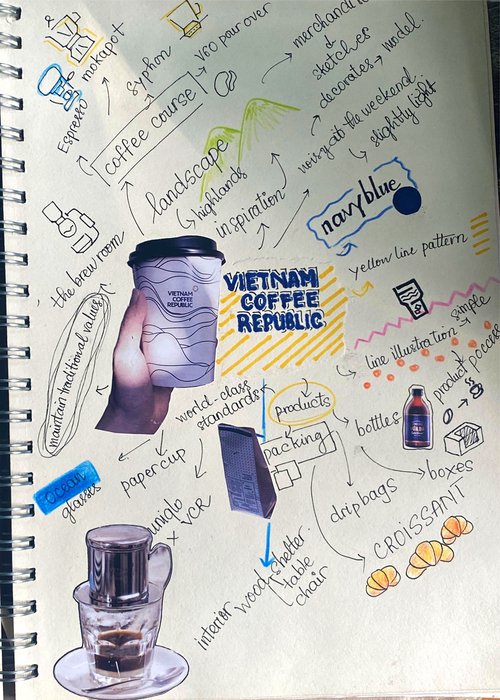 merchandi
&
sketches
decorates → model.
mokapot
syphon
V60 pour over
Espresso
coffee course
noisy at the weekend
slightly light
landscape
highlands
inspiration
navy blue
the brew room
yellow line pattern
VIETNAM
COFFEE
REPUBLIC
VIETNAM
COFFEE
REPUBLIC
maintain traditional values
line illustration → simple
product pocess
world-class
standards
products
bottles
packing
paper cup
ocean
glasses
uniqlo
x VCR
dripbags
boxes
CROISSANT
interior
wood
shelter
table
chair